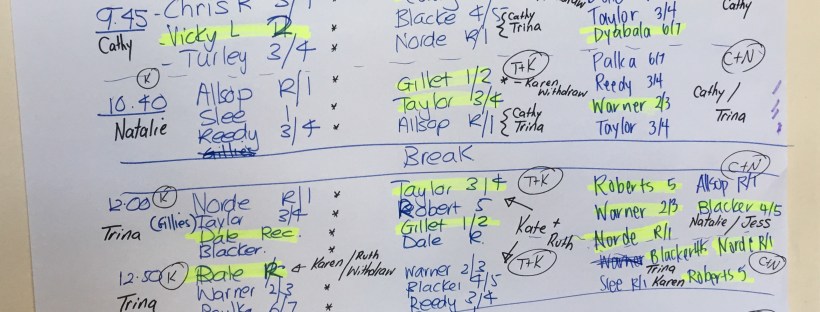 9.45 - Chris K 3/1
Cathy - Vicky L
- Turley 3/4
Blacke 4/5 { Cathy
Norde R/1 { Trina
Withdraw
Taylor 3/4
Dybala 6/7
Cathy
K
10.40 Allsop R/1
Natalie Slee 1
Reedy 3/4
Gillies
Gillet 1/2 * - Karen Withdraw
T+K
Taylor 3/4
Allsop R/1 { Cathy
Trina
Palka 6/7
C+N
Reedy 3/4
Warner 2/3
Taylor 3/4
Cathy /
Trina
Break
12.00 K Norde R/1 *
(Gillies) Taylor 3/4 *
Trina Dale Rec. *
Blacker. *
Taylor 3/4 T+K
Robert 5
Gillet 1/2
Dale R
Kate +
Ruth
T+K
C+N
Roberts 5 Allsop R/1
Warner 2/3 Blacker 4/5
Natalie / Jess
Norde R/1
Warner Blacker Norde R/1
Trina
C+N
Slee R/1 Karen Roberts 5
12.50 K Dale R Karen / Ruth
Withdraw
Trina Warner 2/3 *
6/7
Warner 2/3
Blacker 4/5
Reedy 3/4